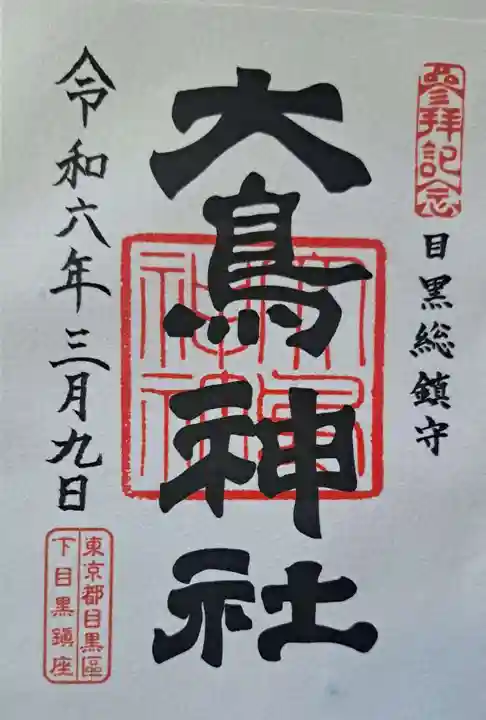 參拜記念
目黒総鎮守
大鳥神社
令和六年三月九日
東京都目黒區
下目黒鎭座